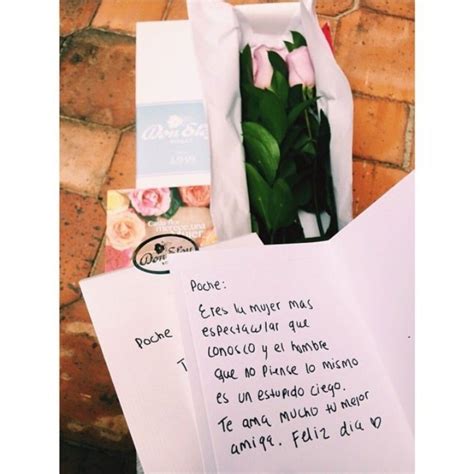 Don Eloy
1949
merece una
Don Eloy
Poche
T
Poche:
Eres la mujer mas
espectacular que
conosco y el hombre
que no piense lo mismo
es un estupido ciego.
Te ama mucho tu mejor
amiga. Feliz dia ♡